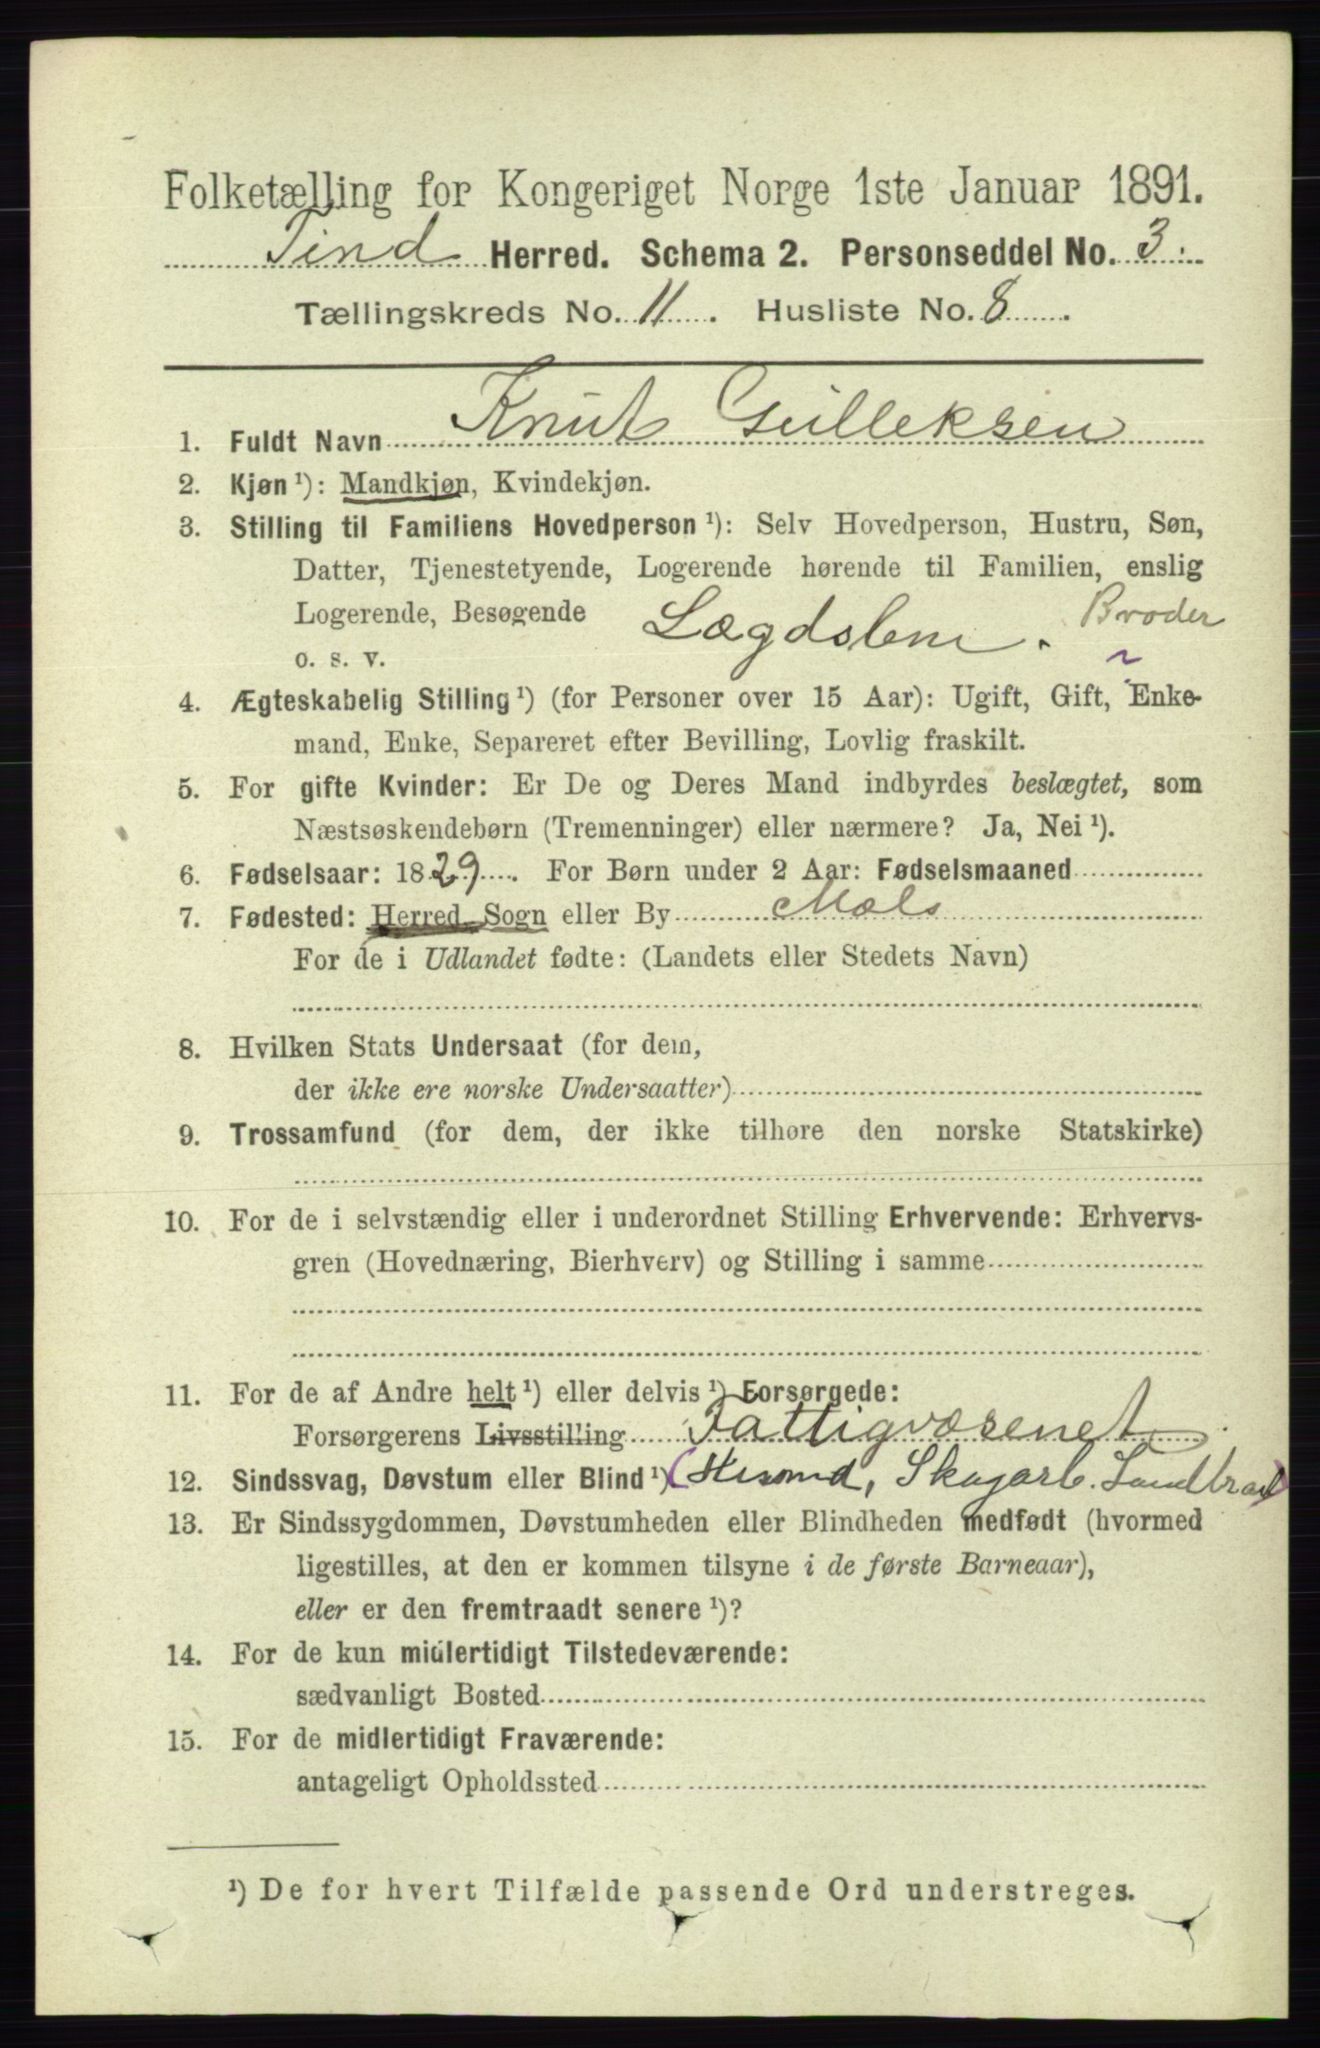 Folketælling for Kongeriget Norge 1ste Januar 1891.
Tind Herred. Schema 2. Personseddel No. 3.
Tællingskreds No. 11. Husliste No. 8.
1. Fuldt Navn Knut Gulleksen
2. Kjøn ¹): Mandkjøn, Kvindekjøn.
3. Stilling til Familiens Hovedperson ¹): Selv Hovedperson, Hustru, Søn,
Datter, Tjenestetyende, Logerende hørende til Familien, enslig
Logerende, Besøgende Lægdslem. Broder
o. s. v.
4. Ægteskabelig Stilling ¹) (for Personer over 15 Aar): Ugift, Gift, Enke-
mand, Enke, Separeret efter Bevilling, Lovlig fraskilt.
5. For gifte Kvinder: Er De og Deres Mand indbyrdes beslægtet, som
Næstsøskendebørn (Tremenninger) eller nærmere? Ja, Nei ¹).
6. Fødselsaar: 1829. For Børn under 2 Aar: Fødselsmaaned
7. Fødested: Herred, Sogn eller By Mæls
For de i Udlandet fødte: (Landets eller Stedets Navn)
8. Hvilken Stats Undersaat (for dem,
der ikke ere norske Undersaatter)
9. Trossamfund (for dem, der ikke tilhøre den norske Statskirke)
10. For de i selvstændig eller i underordnet Stilling Erhvervende: Erhvervs-
gren (Hovednæring, Bierhverv) og Stilling i samme
11. For de af Andre helt ¹) eller delvis ¹) Forsørgede:
Forsørgerens Livsstilling Fattigvæsenet
12. Sindssvag, Døvstum eller Blind ¹) (Husmd, Skogarb. Landbrug)
13. Er Sindssygdommen, Døvstumheden eller Blindheden medfødt (hvormed
ligestilles, at den er kommen tilsyne i de første Barneaar),
eller er den fremtraadt senere ¹)?
14. For de kun midlertidigt Tilstedeværende:
sædvanligt Bosted
15. For de midlertidigt Fraværende:
antageligt Opholdssted
¹) De for hvert Tilfælde passende Ord understreges.